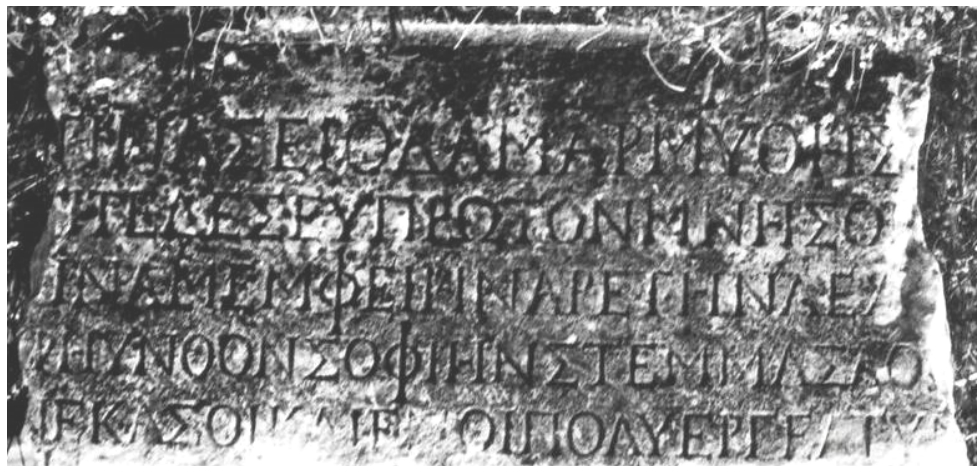 ΠΡΙΑΣΕΙΟΔΑΜΑΡΜΥΘΗΣ
ΙΤΕΔΕΣΕΥΠΡΩΤΟΝΜΝΗΣΟ
ΙΝΑΜΕΜΦΕΙΗΙΝΑΡΕΤΗΝΛΕΛ
ΗΥΝΘΟΝΣΟΦΙΗΝΣΤΕΜΜΑΣΑΟ
ΕΚΑΣΟΙΚΑΙΕ ΟΙΠΟΛΥΕΡΓΕΑ